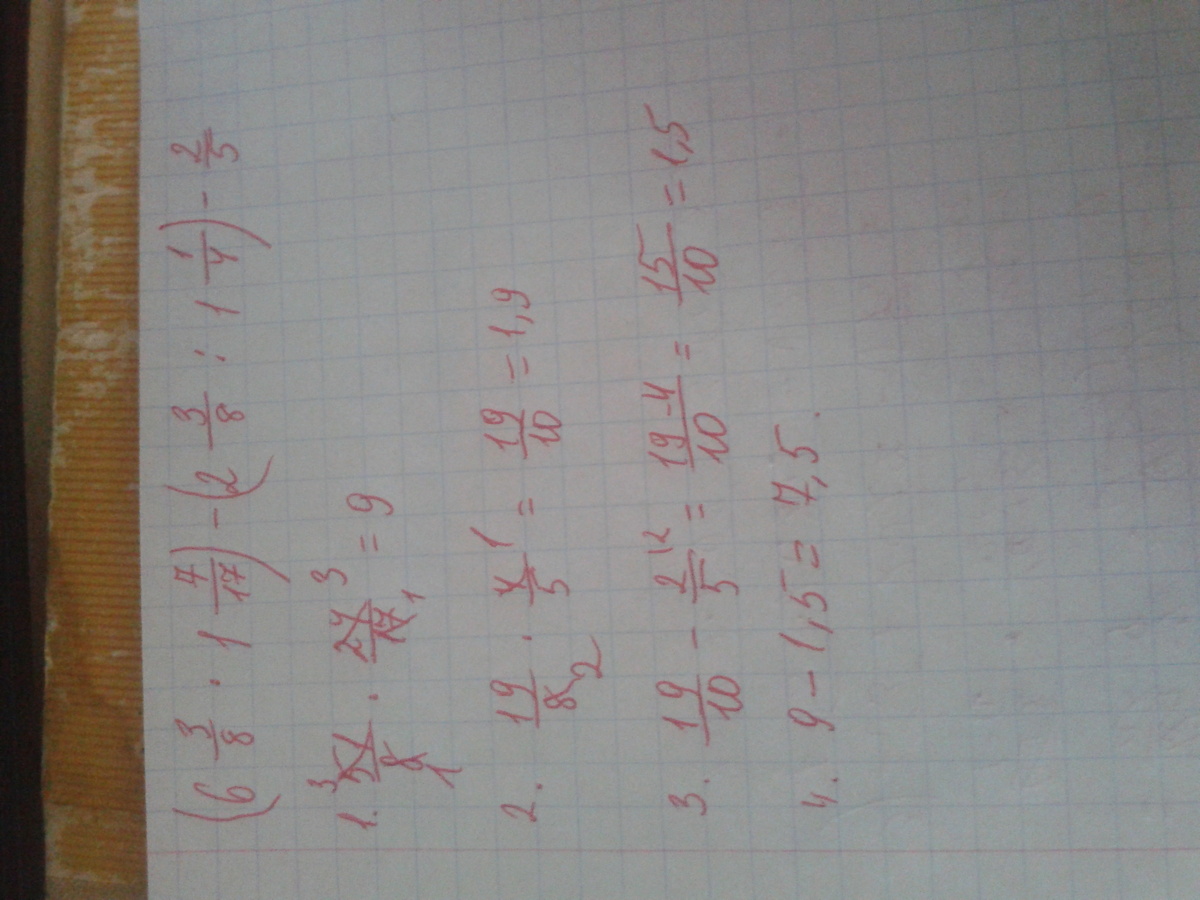 (6 3/8 · 1 7/17) - (2 3/8 : 1 1/4) - 2/5
1. 51/8 · 24/17 = 9
2. 19/8 · 4/5 = 19/10 = 1,9
3. 19/10 - 2/5 = 19-4/10 = 15/10 = 1,5
4. 9 - 1,5 = 7,5.